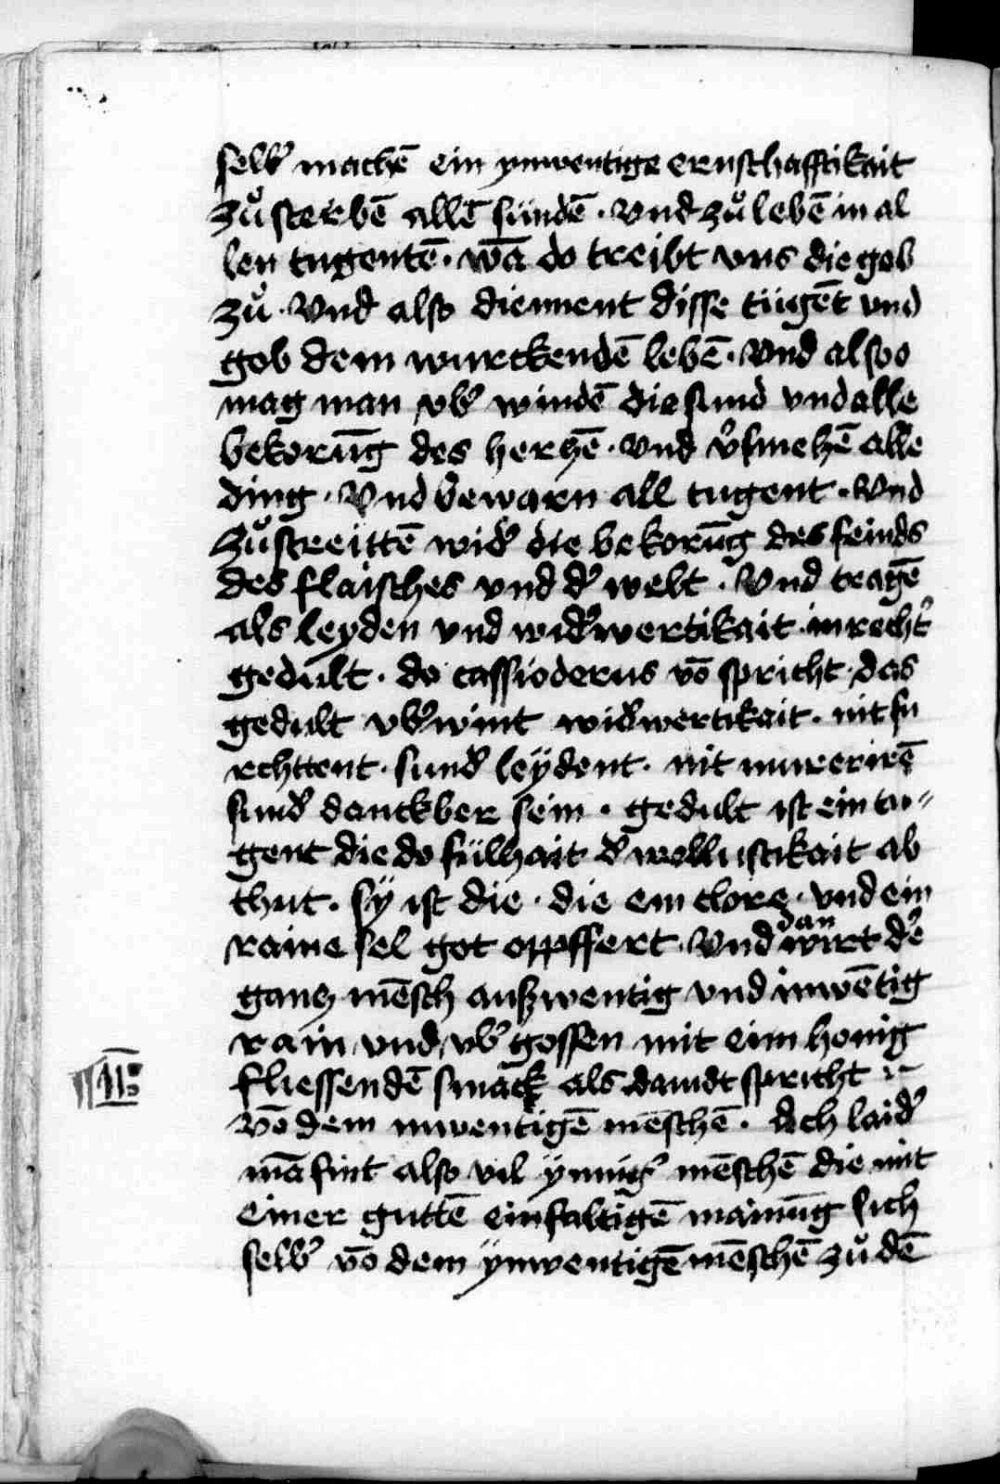 selb' machē ein ynwentige ernschafftikait
zuͦ sterbē allē sündē · vnd zuͦ lebē in al
len tugentē · wā do treibt vns die gob
zuͦ · Vnd also diennent disse tugēt vnd
gob dem wurckendē lebē · vnd alsoo
mag man vb' windē die sund vnd alle
bekorūg des herczē · vnd v'smehē alle
ding · Vnd bewarn all tugent · Vnd
zuͦ streittē wid' die bekorūg des feinds
des flaisches vnd d' welt · Vnd tragē
als leyden vnd wid'wertikait in recht'
gedult · do cassioderus vō spricht · das
gedult vb'wint wid'wertikait · nit fu
rchttent · sund' leÿdent · nit murerirē
sund' danckber sein · gedult ist ein tu〃
gent die do fülhait d' wollustikait ab
thut · sÿ ist die · die ein clore · vnd ein
raine sel got oppffert · Vnd dan wirt d'
gancz mēsch auszwentig vnd inwētig
rain vnd vb' gossen mit eim honig
fliessendē smack als dauidt spricht
vō dem inwentigē mēschē · Ach laid'
mā fint also vil ÿnnig' mēschē die mit
einer guttē einfaltigē mainūg sich
selb' vō dem ÿnwentigē mēschē zuͦ dē